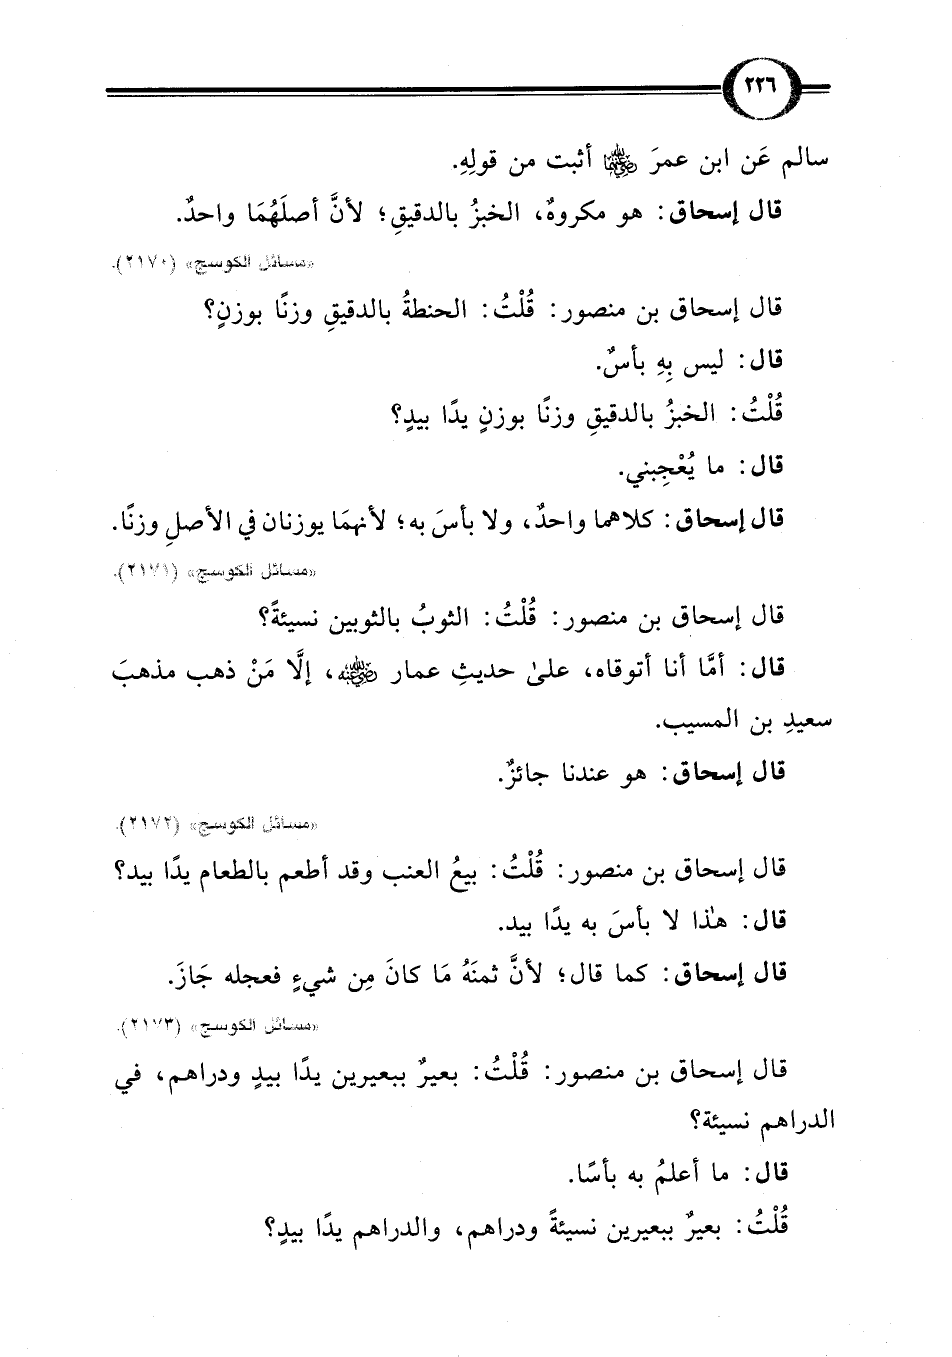 ٢٢٦
سالم عَن ابن عمرَ رضي الله عنهما أثبت من قولِهِ.
قال إسحاق: هو مكروهٌ، الخبزُ بالدقيقِ؛ لأنَّ أصلَهُمَا واحدٌ.
«مسائل الكوسج» (٢١٧٠).
قال إسحاق بن منصور: قُلْتُ: الحنطةُ بالدقيقِ وزنًا بوزنٍ؟
قال: ليس بِهِ بأسٌ.
قُلْتُ: الخبزُ بالدقيقِ وزنًا بوزنٍ يدًا بيدٍ؟
قال: ما يُعْجِبني.
قال إسحاق: كلاهما واحدٌ، ولا بأسَ به؛ لأنهمَا يوزنان في الأصلِ وزنًا.
«مسائل الكوسج» (٢١٧١).
قال إسحاق بن منصور: قُلْتُ: الثوبُ بالثوبين نسيئةً؟
قال: أمَّا أنا أتوقاه، علىٰ حديثِ عمار رضي الله عنه، إلَّا مَنْ ذهب مذهبَ
سعيدِ بن المسيب.
قال إسحاق: هو عندنا جائزٌ.
«مسائل الكوسج» (٢١٧٢).
قال إسحاق بن منصور: قُلْتُ: بيعُ العنب وقد أطعم بالطعام يدًا بيد؟
قال: هٰذا لا بأسَ به يدًا بيد.
قال إسحاق: كما قال؛ لأنَّ ثمنَهُ مَا كانَ مِن شيءٍ فعجله جَازَ.
«مسائل الكوسج» (٢١٧٣).
قال إسحاق بن منصور: قُلْتُ: بعيرٌ ببعيرين يدًا بيدٍ ودراهم، في
الدراهم نسيئة؟
قال: ما أعلمُ به بأسًا.
قُلْتُ: بعيرٌ ببعيرين نسيئةً ودراهم، والدراهم يدًا بيدٍ؟